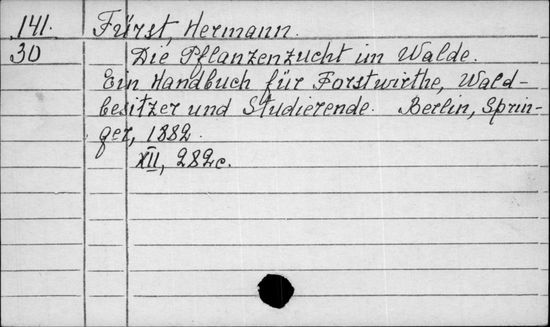 141. Fürst, Hermann.
30 Die Pflanzenzucht im Walde.
Ein Handbuch für Forstwirthe, Wald-
besitzer und Studierende. Berlin, Sprin-
ger, 1882.
XII, 282c.